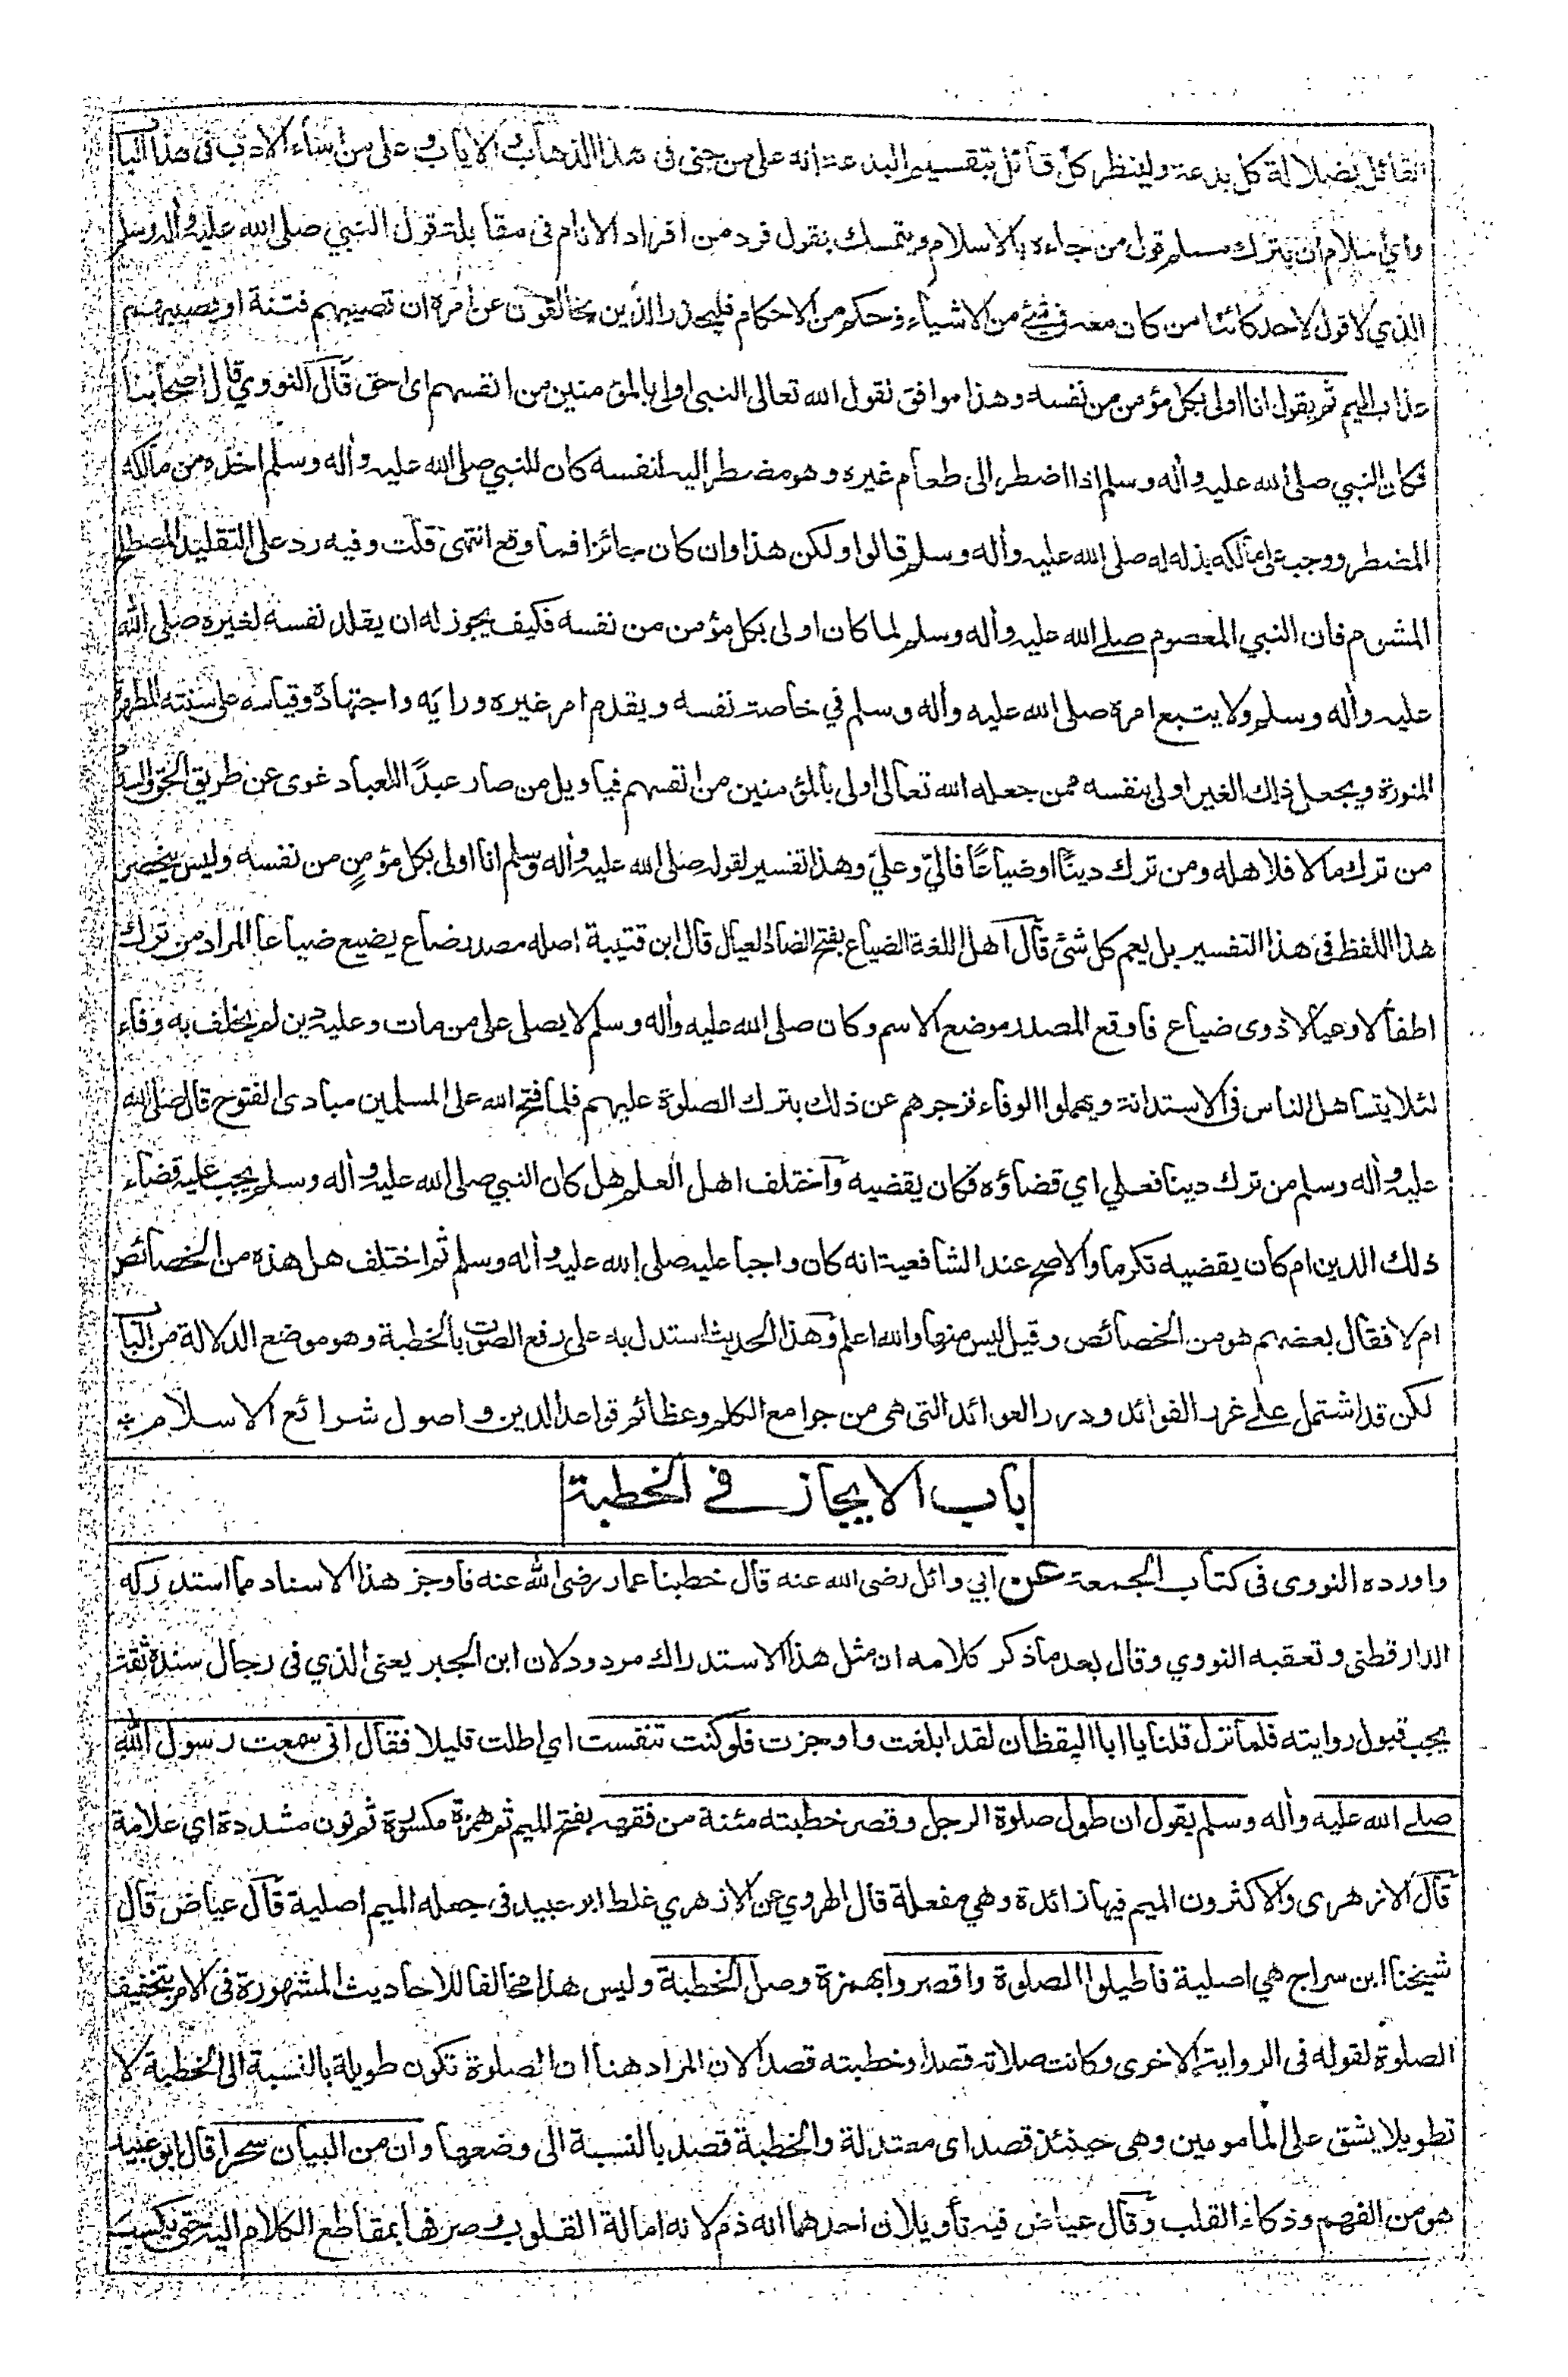 القائل بضلالة كل بدعة ولينظر كل قائل بتقسيم البدعة انه على من جنى فى هذا الذهاب والاياب وعلى من اساء الادب فى هذا الباب
واي اسلام ان يترك مسلم قول من جاءه بالاسلام ويتمسك بقول فرد من افراد الانام فى مقابلة قول النبي صلى الله عليه وأله وسلم
الذي لا قول لاحد كائنا من كان معه فى شئ من الاشياء وحكم من الاحكام فليحذر الذين يخالفون عن امره ان تصيبهم فتنة او يصيبهم
عذاب اليم ثم يقول انا اولى بكل مؤمن من نفسه وهذا موافق لقول الله تعالى النبى اولى بالمؤمنين من انفسهم اى احق قال النووي قال اصحابنا
فكان النبي صلى الله عليه وأله وسلم اذا اضطر الى طعام غيره وهو مضطر اليه لنفسه كان للنبي صلى الله عليه وأله وسلم اخذه من مالكه
المضطر ووجب على مالكه بذله له صلى الله عليه وأله وسلم قالوا ولكن هذا وان كان جائزا فما وقع انتهى قلت وفيه رد على التقليد المصطلح
المشوم فان النبي المعصوم صلى الله عليه وأله وسلم لما كان اولى بكل مؤمن من نفسه فكيف يجوز له ان يقلد نفسه لغيره صلى الله
عليه وأله وسلم ولا يتبع امره صلى الله عليه وأله وسلم في خاصة نفسه ويقدم امر غيره ورايه واجتهاده وقياسه على سنته المطهرة
المنورة ويجعل ذلك الغير اولى بنفسه ممن جعله الله تعالى اولى بالمؤمنين من انفسهم فياويل من صار عبدًا للعباد غوى عن طريق الحق
من ترك مالا فلاهله ومن ترك دينًا او ضياعًا فاليّ وعليّ وهذا تفسير لقوله صلى الله عليه وأله وسلم انا اولى بكل مؤمنٍ من نفسه وليس ينحصر
هذا اللفظ فى هذا التفسير بل يعم كل شئ قال اهل اللغة الضياع بفتح الضاد العيال قال ابن قتيبة اصله مصدر ضاع يضيع ضياعا المراد من ترك
اطفالا وعيالا ذوى ضياع فاوقع المصدر موضع الاسم وكان صلى الله عليه وأله وسلم لا يصلى على من مات وعليه دين لم يخلف به وفاء
لئلا يتساهل الناس فى الاستدانة ويهملوا الوفاء فزجرهم عن ذلك بترك الصلوة عليهم فلما فتح الله على المسلمين مبادى الفتوح قال صلى الله
عليه وأله وسلم من ترك دينا فعلي اي قضاؤه فكان يقضيه واختلف اهل العلم هل كان النبي صلى الله عليه وأله وسلم يجب عليه قضاء
ذلك الدين ام كان يقضيه تكرما والاصح عند الشافعية انه كان واجبا عليه صلى الله عليه وأله وسلم ثم اختلف هل هذه من الخصائص
ام لا فقال بعضهم هو من الخصائص وقيل ليس منها والله اعلم وهذا الحديث استدل به على رفع الصوت بالخطبة وهو موضع الدلالة من الباب
لكن قد اشتمل على غرر الفوائد ودرر العوائد التى هى من جوامع الكلم وعظائم قواعد الدين واصول شرائع الاسلام
باب الايجاز في الخطبة
واورده النووى فى كتاب الجمعة عن ابي وائل رضى الله عنه قال خطبنا عمار رضى الله عنه فاوجز هذا الاسناد مما استدركه
الدارقطنى وتعقبه النووي وقال بعد ما ذكر كلامه ان مثل هذا الاستدراك مردود لان ابن الجبر يعنى الذي فى رجال سنده ثقة
يجب قبول روايته فلما نزل قلنا يا ابا اليقظان لقد ابلغت واوجزت فلو كنت تنفست اي اطلت قليلا فقال انى سمعت رسول الله
صلى الله عليه وأله وسلم يقول ان طول صلوة الرجل وقصر خطبته مئنة من فقهه بفتح الميم ثم همزة مكسورة ثم نون مشددة اي علامة
قال الازهرى والاكثرون الميم فيها زائدة وهي مفعلة قال الهروي عن الازهري غلط ابو عبيد فى جعله الميم اصلية قال عياض قال
شيخنا ابن سراج هي اصلية فاطيلوا الصلوة واقصروا بهمزة وصل الخطبة وليس هذا مخالفا للاحاديث المشهورة فى الامر بتخفيف
الصلوة لقوله فى الرواية الاخرى وكانت صلاته قصدا وخطبته قصدا لان المراد هنا ان الصلوة تكون طويلة بالنسبة الى الخطبة لا
تطويلا يشق على المامومين وهى حينئذ قصد اى معتدلة والخطبة قصد بالنسبة الى وضعها وان من البيان سحرا قال ابو عبيد
هو من الفهم وذكاء القلب وقال عياض فيه تأويلان احدهما انه ذم لانه امالة القلوب وصرفها بمقاطع الكلام اليه حتى يكسب